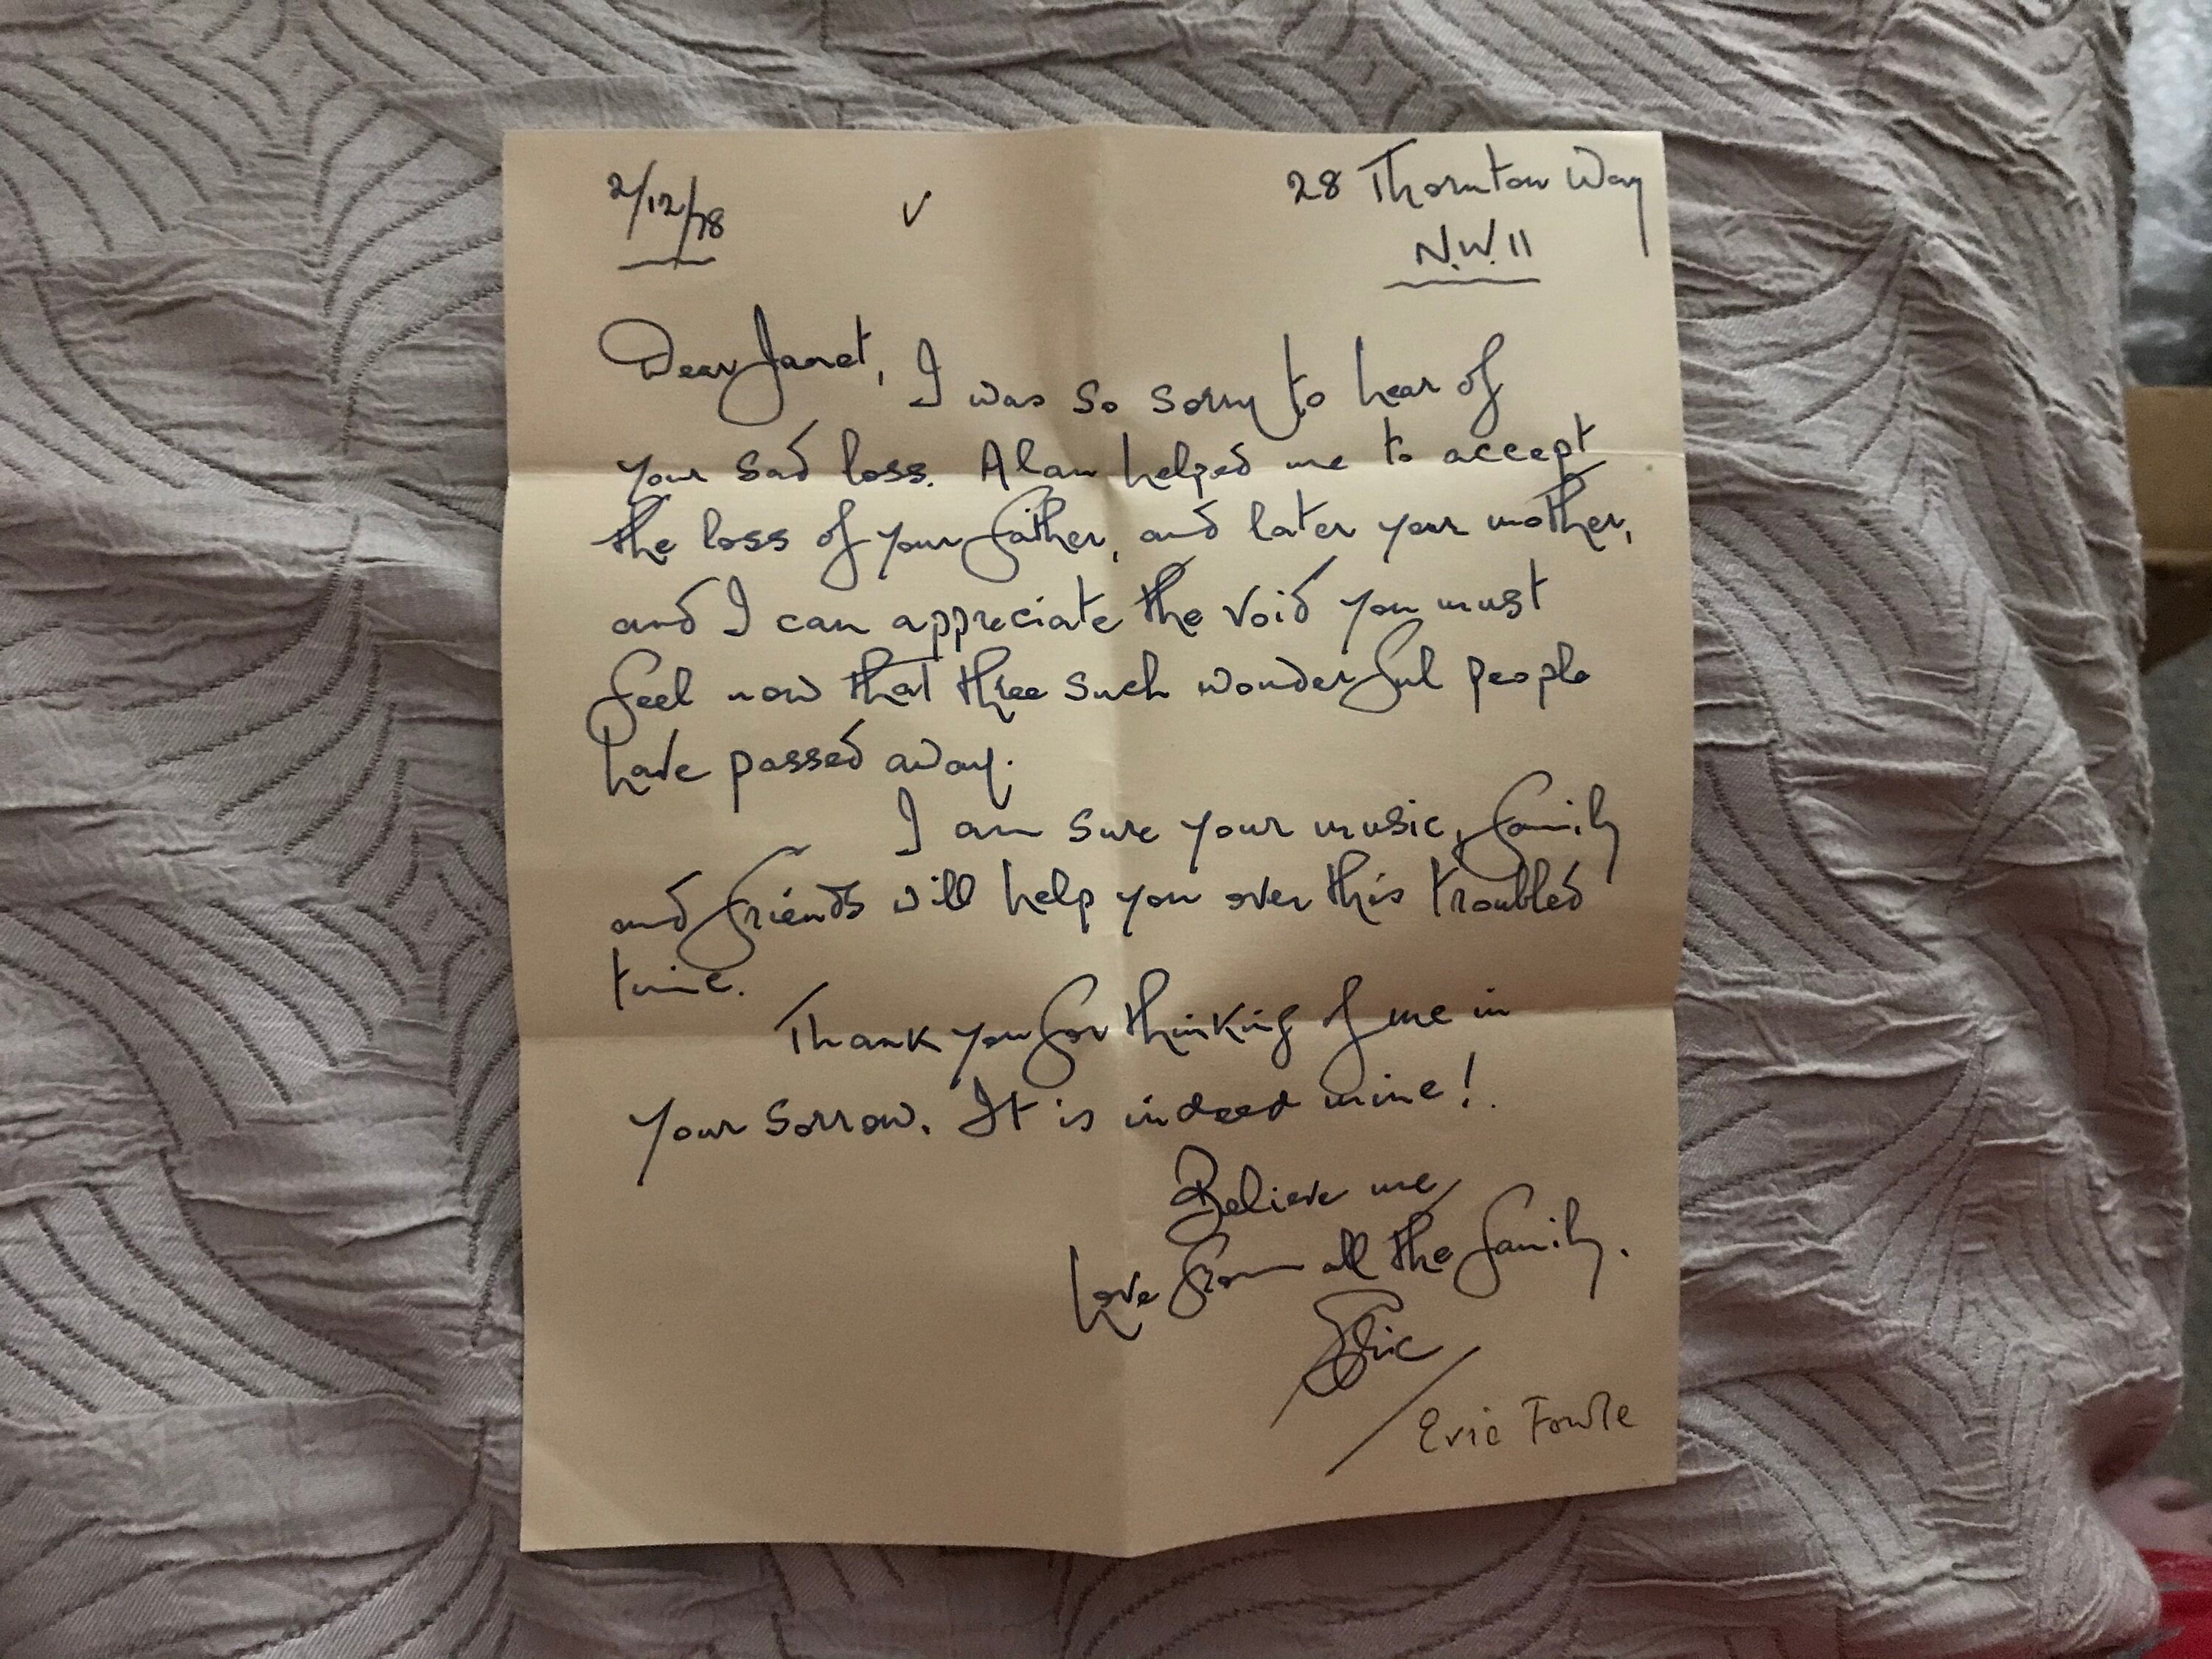 2/12/78 ✓ 28 Thornton Way
N.W.11
Dear Janet, I was so sorry to hear of
your sad loss. Alan helped me to accept
the loss of your father, and later your mother,
and I can appreciate the void you must
feel now that three such wonderful people
have passed away.
I am sure your music, family
and friends will help you over this troubled
time.
Thank you for thinking of me in
your sorrow. It is indeed mine!
Believe me
Love from all the family.
Eric
Eric Fowle